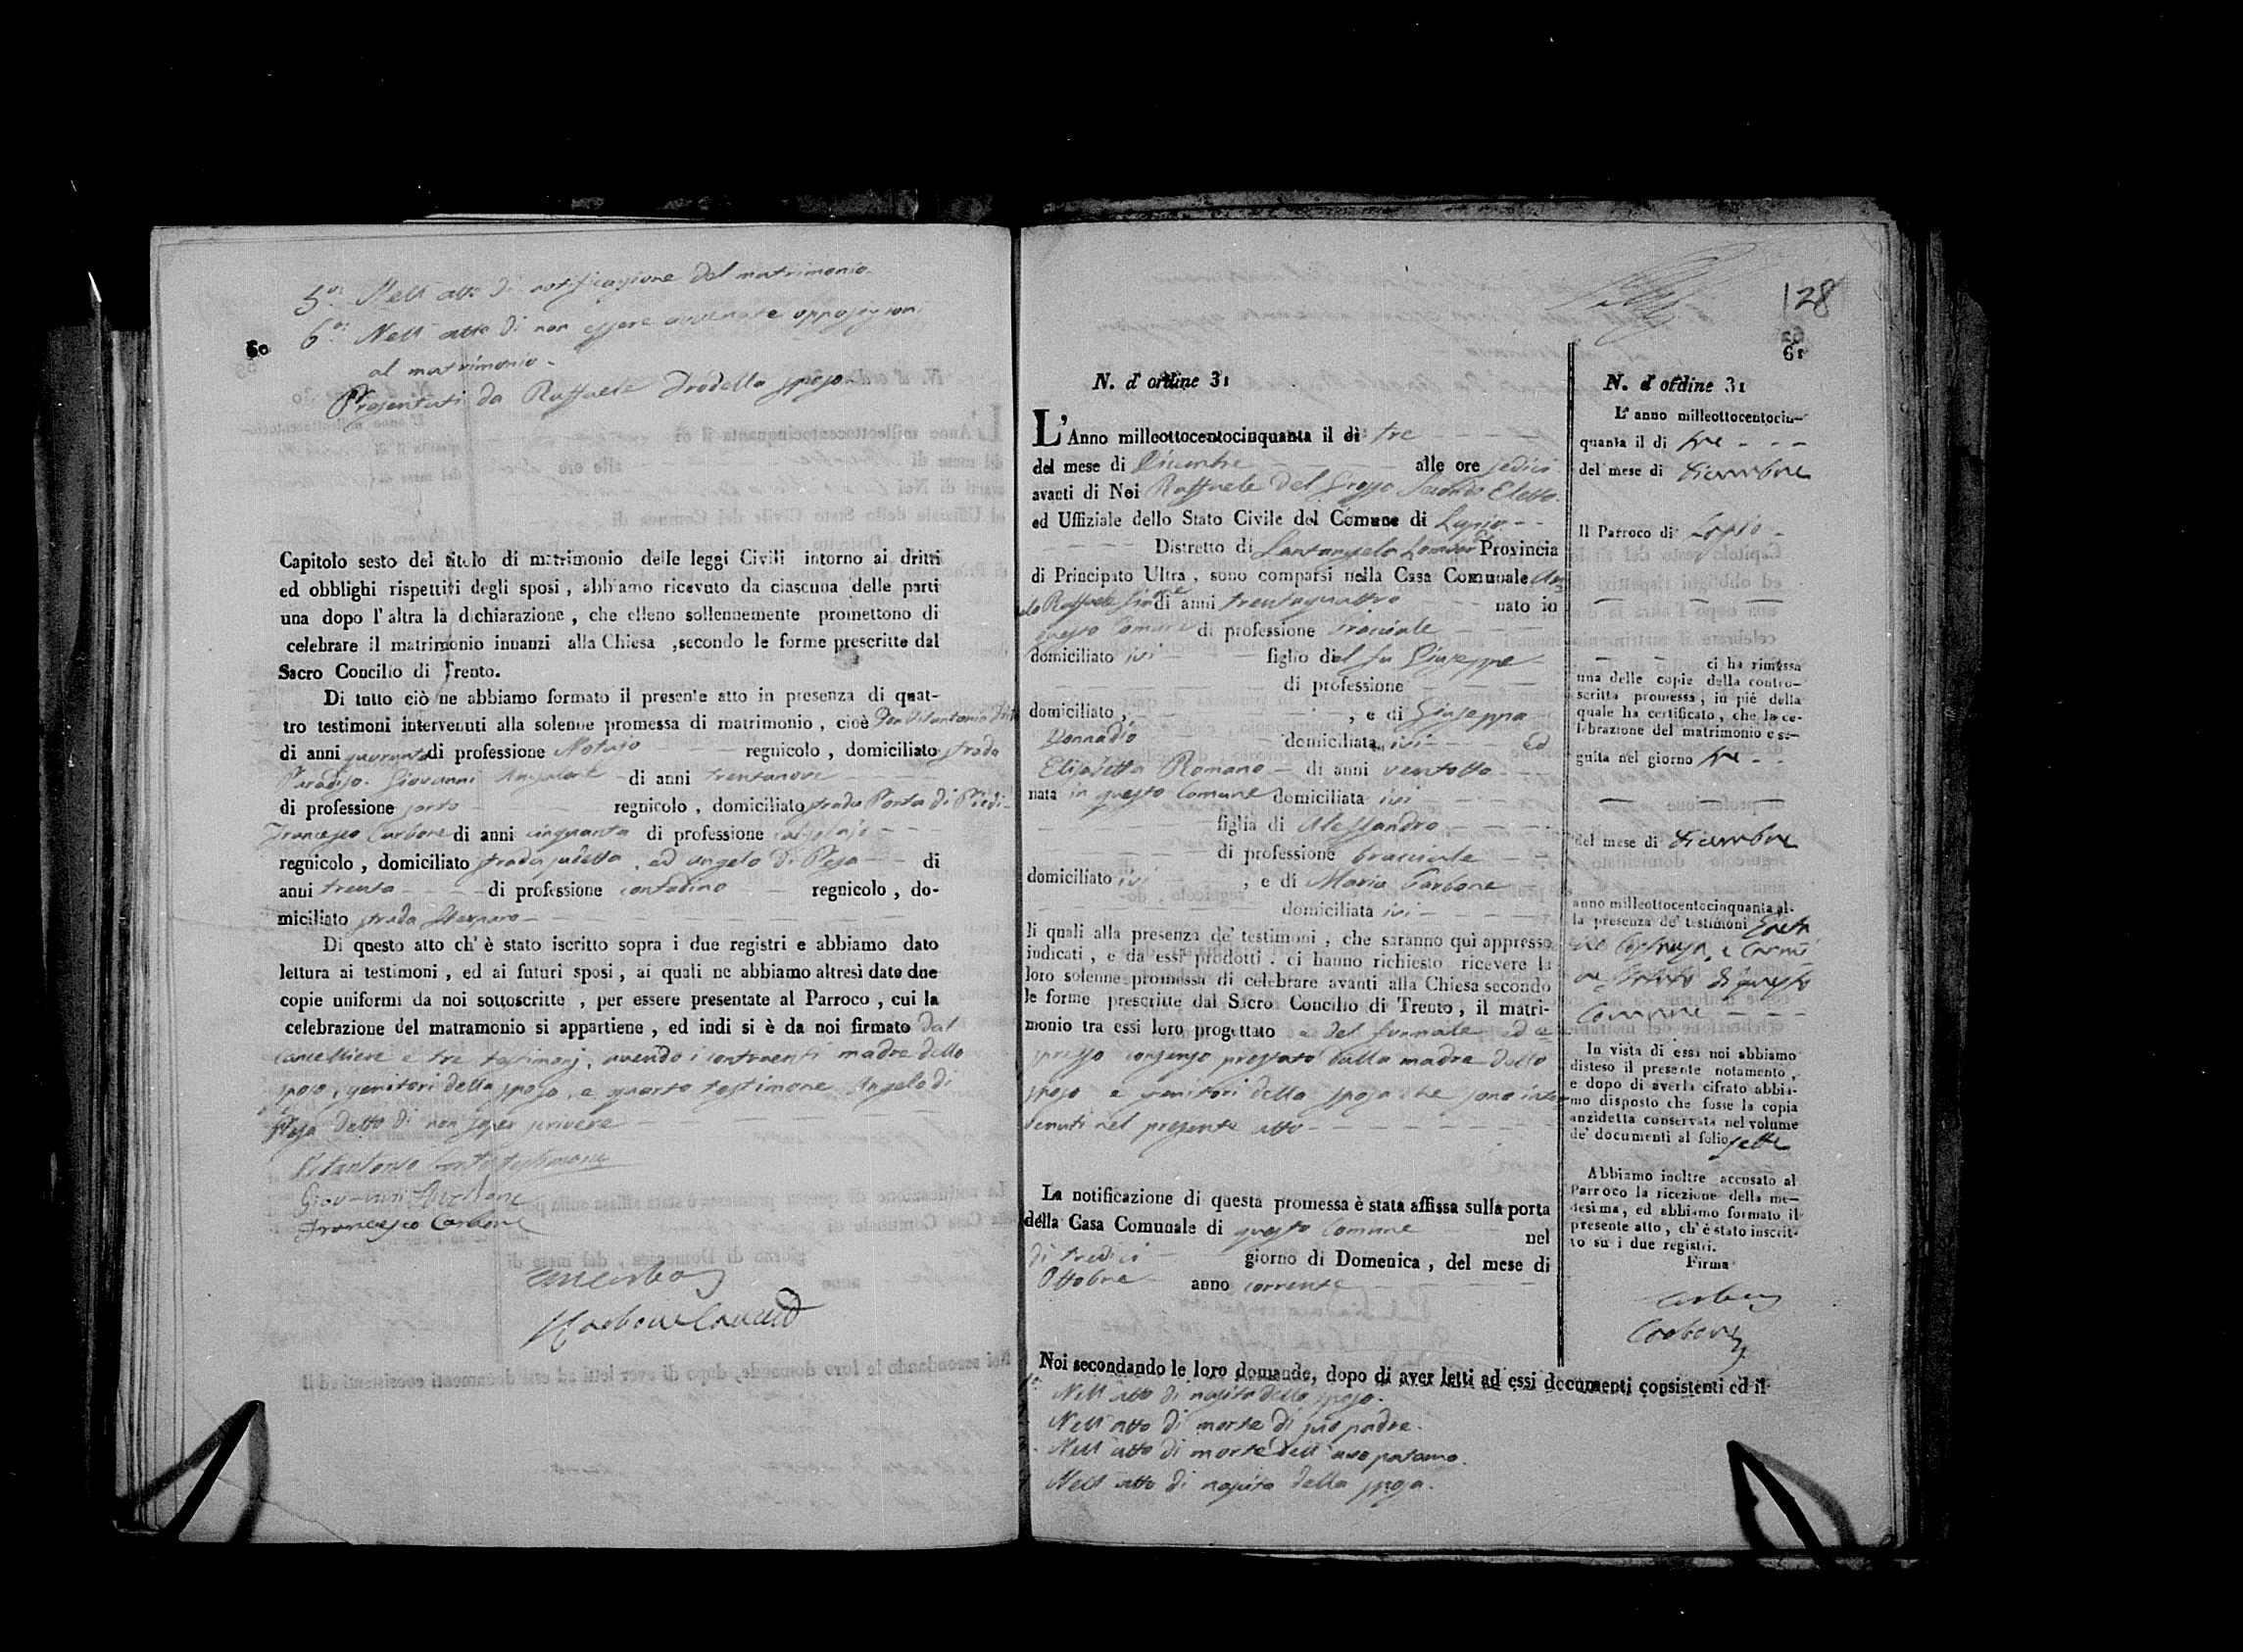 5° Nell' atto di notificazione del matrimonio.
6° Nell' atto di non essere opposizioni
al matrimonio.
Presentati da Raffaele sposo.
60
Capitolo sesto del titolo di matrimonio delle leggi Civili intorno ai dritti
ed obblighi rispettivi degli sposi, abbiamo ricevuto da ciascuna delle parti
una dopo l'altra la dichiarazione, che elleno sollennemente promettono di
celebrare il matrimonio innanzi alla Chiesa, secondo le forme prescritte dal
Sacro Concilio di Trento.
Di tutto ciò ne abbiamo formato il presente atto in presenza di quat-
tro testimoni intervenuti alla solenne promessa di matrimonio, cioè Don Vitantonio
di anni quaranta di professione Notaio regnicolo, domiciliato strada
Paradiso. Giovanni di anni trentanove
di professione sarto regnicolo, domiciliato strada Porta di
Francesco Carbone di anni cinquanta di professione
regnicolo, domiciliato strada ed Angelo di Pesa di
anni trenta di professione contadino regnicolo, do-
miciliato strada
Di questo atto ch' è stato iscritto sopra i due registri e abbiamo dato
lettura ai testimoni, ed ai futuri sposi, ai quali ne abbiamo altresì dato due
copie uniformi da noi sottoscritte, per essere presentate al Parroco, cui la
celebrazione del matramonio si appartiene, ed indi si è da noi firmato dal
cancelliere e tre testimonj, avendo i contraenti madre dello
sposo, genitori della sposa, e quarto testimone Angelo di
Pesa detto di non saper scrivere
Vitantonio testimone
Giovanni
Francesco Carbone
128
61
N. d' ordine 31
L'Anno milleottocentocinquanta il dì tre
del mese di Dicembre alle ore sedici
avanti di Noi Raffaele Del Grosso Secondo Eletto
ed Uffiziale dello Stato Civile del Comune di Lapio
Distretto di Santangelo Lombardi Provincia
di Principato Ultra, sono comparsi nella Casa Comunale
Raffaele di anni trentaquattro nato in
questo Comune di professione bracciale
domiciliato ivi figlio del fu Giuseppe
di professione
domiciliato, , e di Giuseppa
Donnadio domiciliata ivi Ed
Elisabetta Romano di anni ventotto
nata in questo Comune domiciliata ivi
figlia di Alessandro
di professione bracciale
domiciliato ivi , e di Maria Carbone
domiciliata ivi
li quali alla presenza de' testimoni, che saranno quì appresso
indicati, e da essi prodotti, ci hanno richiesto ricevere la
loro solenne promessa di celebrare avanti alla Chiesa secondo
le forme prescritte dal Sacro Concilio di Trento, il matri-
monio tra essi loro progettato e del formale ed e
spresso consenso prestato dalla madre dello
sposo e genitori della sposa che sono inter
venuti nel presente atto
La notificazione di questa promessa è stata affissa sulla porta
della Casa Comunale di questo Comune nel
dì tredici giorno di Domenica, del mese di
Ottobre anno corrente
Noi secondando le loro domande, dopo di aver letti ad essi documenti consistenti ed il
Nell' atto di nascita dello sposo.
Nell' atto di morte di suo padre.
Nell' atto di morte dell' avo paterno.
Nell' atto di nascita della sposa.
N. d' ordine 31
L' anno milleottocentocin-
quanta il di tre
del mese di Dicembre
Il Parroco di Lapio
ci ha rimessa
una delle copie della contro-
scritta promessa, in piè della
quale ha certificato, che la ce-
lebrazione del matrimonio e se-
guita nel giorno tre
del mese di Dicembre
anno milleottocentocinquanta al-
la presenza de' testimoni
di questo
Comune
In vista di essi noi abbiamo
disteso il presente notamento,
e dopo di averla cifrato abbia-
mo disposto che fosse la copia
anzidetta conservata nel volume
de' documenti al folio sette
Abbiamo inoltre accusato al
Parroco la ricezione della me-
desima, ed abbiamo formato il
presente atto, ch' è stato inscrit-
to su i due registri.
Firma
Carbone